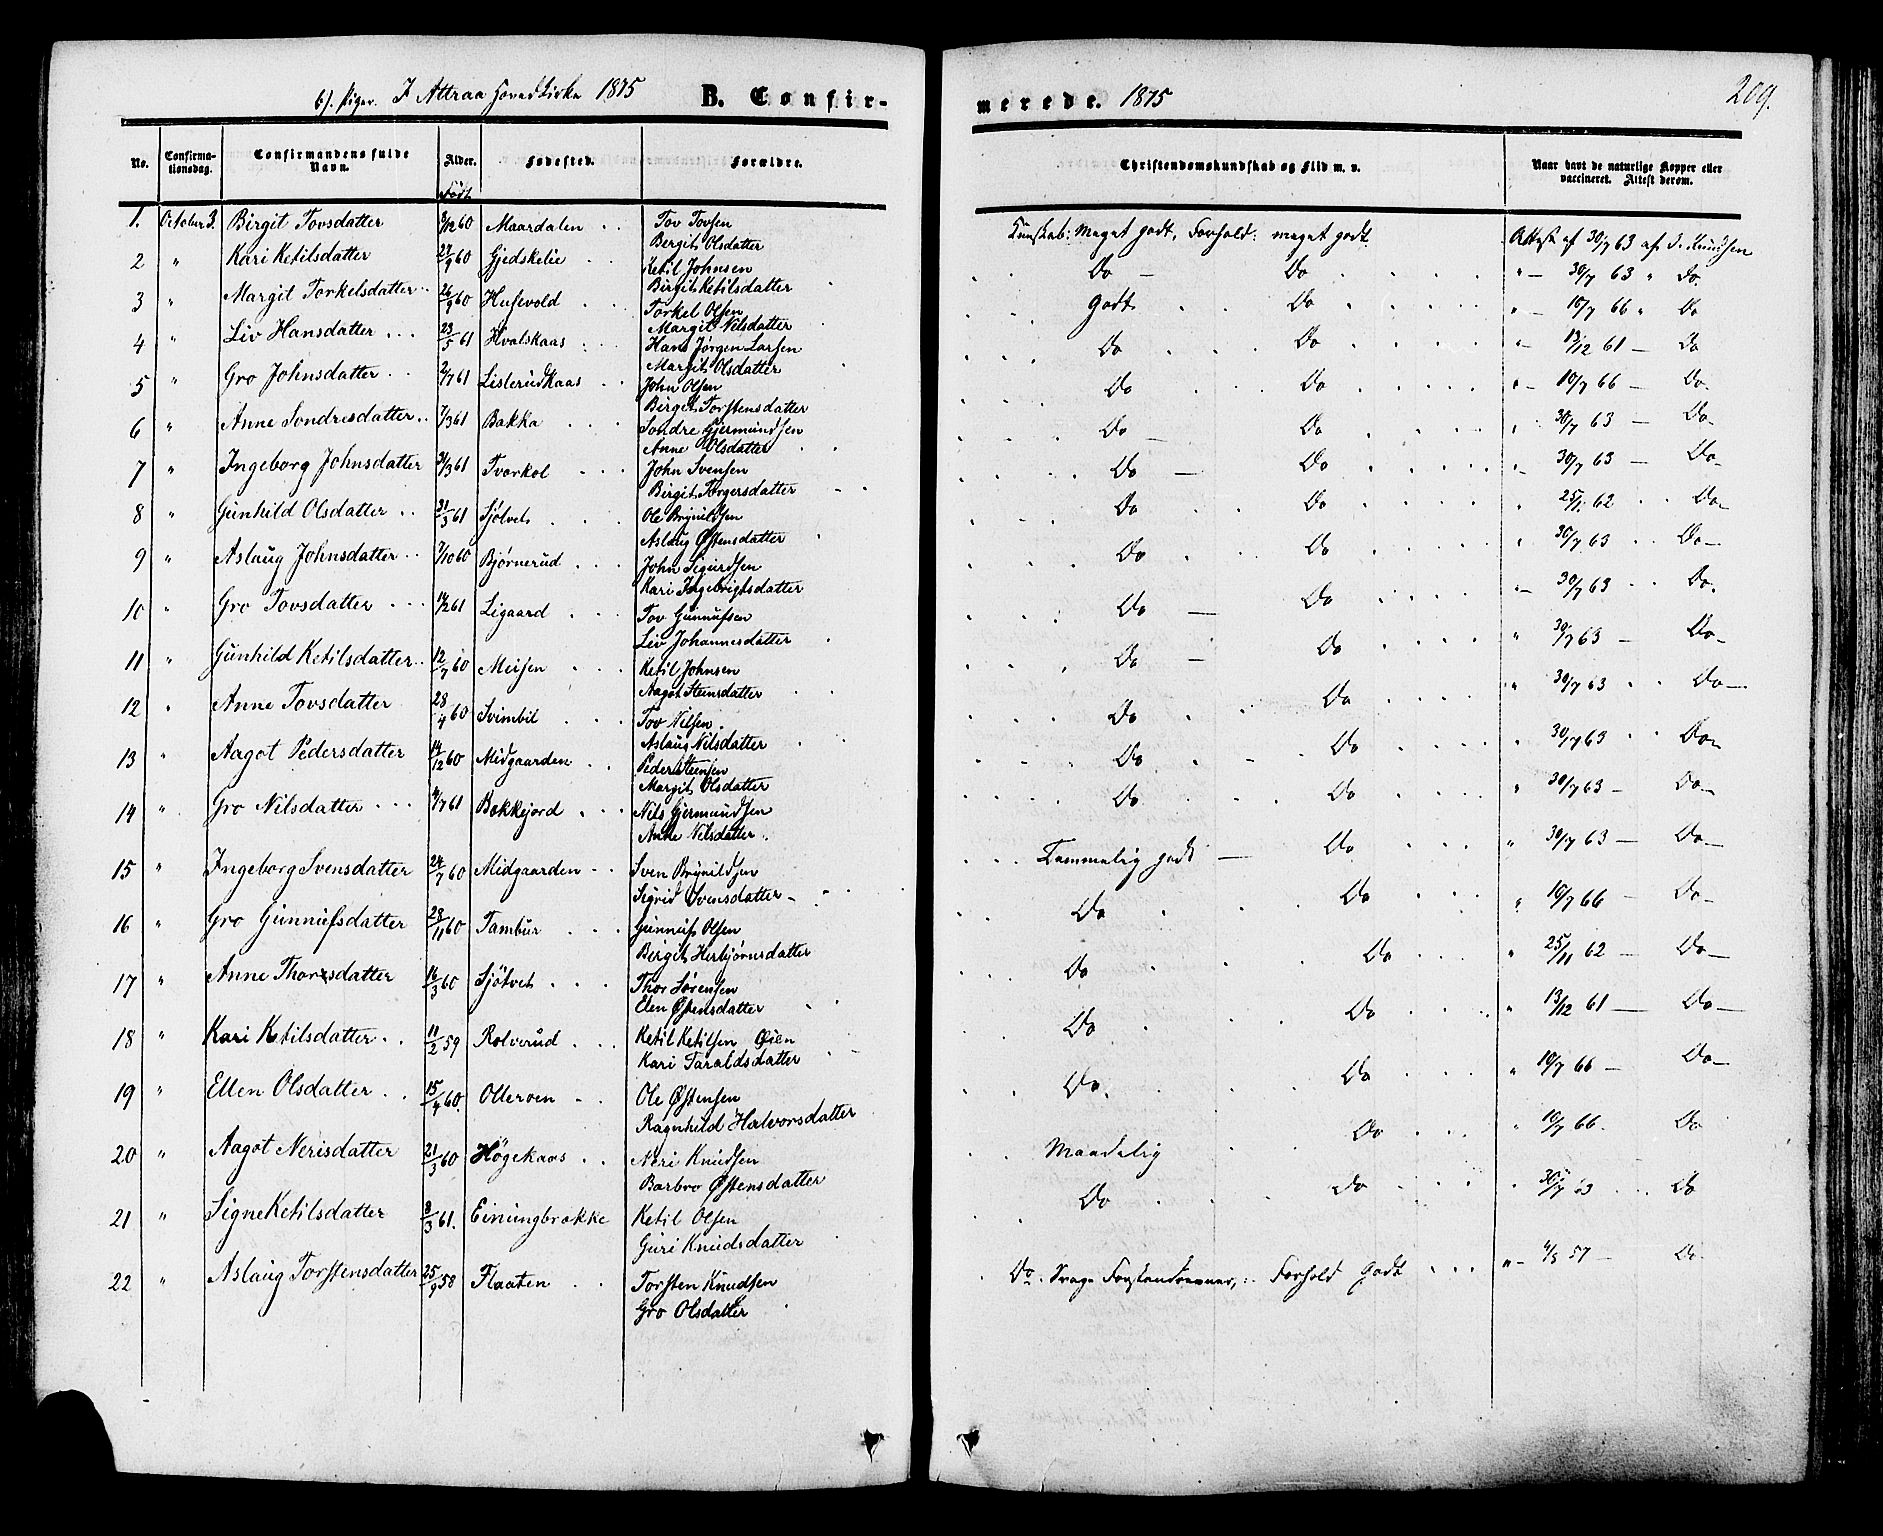 b). Piger. I Attraa Hovedkirke 1875 B. Confir-
merede. 1875 209.
No. Confirmationsdag. Confirmandens fulde Navn. Alder. Fødested. Forældre. Christendomskundskab og Flid m. v. Naar havt de naturlige Kopper eller vaccineret. Attest derom.
Født
1. October 3. Birgit Tovsdatter 3/12 60 Maardalen Tov Tovsen Kunskab: Meget godt, Forhold: meget godt. Attest af 30/7 63 af J. Knudsen
Bergit Olsdatter
2 " Kari Ketilsdatter 27/9 60 Gjedskelie Ketil Johnsen Do — Do " — 30/7 63 " Do.
Birgit Ketilsdatter
3 " Margit Torkelsdatter 26/9 60 Husevold Torkel Olsen Godt Do " — 10/7 66 " Do
Margit Nilsdatter
4 " Liv Hansdatter 23/5 61 Hvalskaas Hans Jørgen Larsen Do Do " — 13/12 61 — Do
Margit Olsdatter
5 " Gro Johnsdatter 2/7 61 Lislerudkaas John Olsen Do Do " — 10/7 66 — Do-
Birgit Torstensdatter
6 " Anne Sondresdatter 7/3 61 Bakka Sondre Gjermundsen Do — Do " 30/7 63 — Do-
Anne Olsdatter
7 " Ingeborg Johnsdatter 31/3 61 Tvørkol John Svensen Do — Do " — 30/7 63 — Do-
Birgit Torgersdatter
8 " Gunhild Olsdatter 31/3 61 Sjøtvet Ole Brynildsen Do Do " 25/11 62 Do-
Aslaug Østensdatter
9 " Aslaug Johnsdatter 7/10 60 Bjørnerud John Sigurdsen Do Do " 30/7 63 Do-
Kari Ingebrigtsdatter
10 " Gro Tovsdatter 14/2 61 Ligaard Tov Gunnufsen Do — Do " — 30/7 63 Do.
Liv Johannesdatter
11 " Gunhild Ketilsdatter 12/7 60 Meisen Ketil Johnsen Do — Do " 30/7 63 — Do-
Aagot Steinsdatter
12 " Anne Tovsdatter 28/4 60 Svimbil Tov Nilsen. Do Do " 30/7 63 Do-
Aslaug Nilsdatter
13 " Aagot Pedersdatter 14/12 60 Midgaarden Peder Steensen Do Do " 30/7 63 Do-
Margit Olsdatter
14 " Gro Nilsdatter 4/7 61 Bakkejord Nils Gjermundsen Do Do " 30/7 63 — Do-
Anne Nilsdatter
15 " Ingeborg Svensdatter 24/7 60 Midgaarden Sven Brynildsen Temmelig godt — Do " 30/7 63 — Do-
Sigrid Svensdatter
16 " Gro Gunnufsdatter 28/11 60 Tambur Gunnuf Olsen Do Do " 10/7 66 — Do-
Birgit Herbjørnsdatter
17 " Anne Thorsdatter 16/3 60 Sjøtvet Thor Sørensen Do Do " 25/11 62 — Do-
Elen Østensdatter
18 " Kari Ketilsdatter 11/2 59 Rolverud Ketil Ketilsen Øien Do Do " 13/12 61 — Do-
Kari Taraldsdatter
19 " Ellen Olsdatter 15/4 60. Olleroen Ole Østensen Do. Do " 10/7 66 — Do-
Ragnhild Halvorsdatter
20 " Aagot Nerisdatter 21/3 60 Høgekaas Neri Knudsen Maadelig Do " 10/7 66. Do
Barbro Østensdatter
21 " Signe Ketilsdatter 8/3 61. Einungbrække Ketil Olsen Do Do " 30/7 63 Do
Guri Knudsdatter
22 " Aslaug Torstensdatter 25/9 58 Flaaten Torsten Knudsen Do. Svage Forstandsevner, Forhold Godt 57 — Do-
Gro Olsdatter